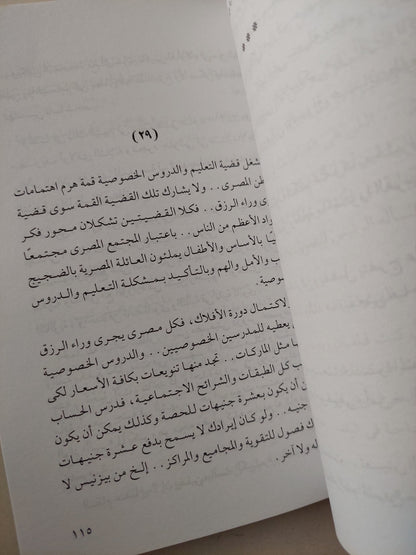 ***
(٢٩)
شغل قضية التعليم والدروس الخصوصية قمة هرم اهتمامات
طن المصرى . . ولا يشارك تلك القضية القمة سوى قضية
ى وراء الرزق . . فكلا القضيتين تشكلان محور فكر
راد الأعظم من الناس . . باعتبار المجتمع المصرى مجتمعًا
يًا بالأساس والأطفال يملئون العائلة المصرية بالضجيج
ب والأمل والهم وبالتأكيد بمشكلة التعليم والدروس
صوصية.
لاكتمال دورة الأفلاك، فكل مصرى يجرى وراء الرزق
يعطيه للمدرسين الخصوصيين . . والدروس الخصوصية
ا مثل الماركات . . تجد منها تنويعات بكافة الأسعار لكى
ب كل الطبقات والشرائح الاجتماعية، فدرس الحساب
ن أن يكون بعشرة جنيهات للحصة وكذلك يمكن أن يكون
جنيه . . ولو كان إيرادك لا يسمح بدفع عشرة جنيهات
ك فصول للتقوية والمجاميع والمراكز . . إلخ من بيزنيس لا
له ولا آخر .
١١٥